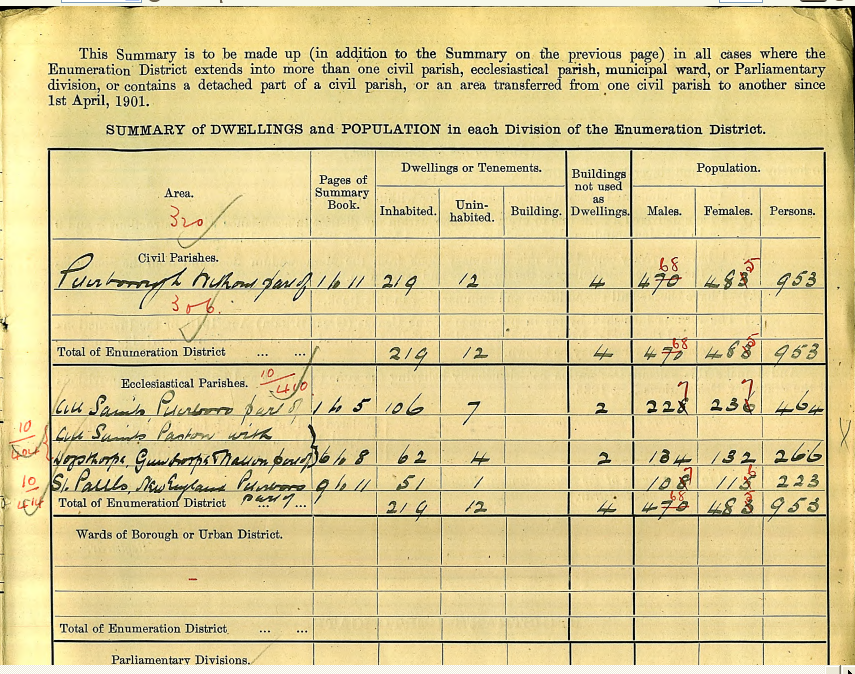 This Summary is to be made up (in addition to the Summary on the previous page) in all cases where the
Enumeration District extends into more than one civil parish, ecclesiastical parish, municipal ward, or Parliamentary
division, or contains a detached part of a civil parish, or an area transferred from one civil parish to another since
1st April, 1901.
SUMMARY of DWELLINGS and POPULATION in each Division of the Enumeration District.
Area. Pages of Summary Book. Dwellings or Tenements. Buildings not used as Dwellings. Population.
Inhabited. Unin-habited. Building. Males. Females. Persons.
320
Civil Parishes.
68 5
Peterborough Without part of 1 to 11 219 12 4 470 483 953
306
Total of Enumeration District ... ... 219 12 4 470 68 483 5 953
Ecclesiastical Parishes. 10/410
All Saints Peterboro part of 1 to 5 106 7 2 228 7 236 7 464
10 All Saints Paston with
Dogsthorpe, Gunthorpe & Walton part of 6 to 8 62 4 2 134 132 266
10/414 St. Pauls, New England Peterboro 9 to 11 51 1 108 7 115 6 223
part of
Total of Enumeration District 219 12 4 470 68 483 5 953
Wards of Borough or Urban District.
–
Total of Enumeration District ... ...
Parliamentary Divisions.